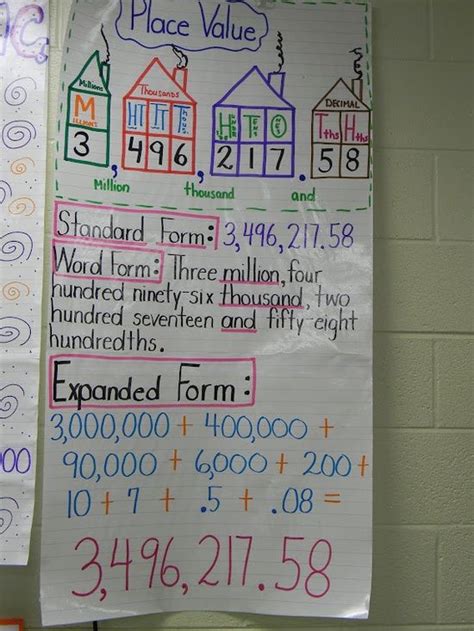 Place Value
Millions Thousands DECIMAL
M HT TT T H T O Tths Hths
3, 496, 217.58
Million thousand and
Standard Form: 3,496,217.58
Word Form: Three million, four
hundred ninety-six thousand, two
hundred seventeen and fifty-eight
hundredths.
Expanded Form:
3,000,000 + 400,000 +
90,000 + 6,000 + 200 +
10 + 7 + .5 + .08 =
3,496,217.58